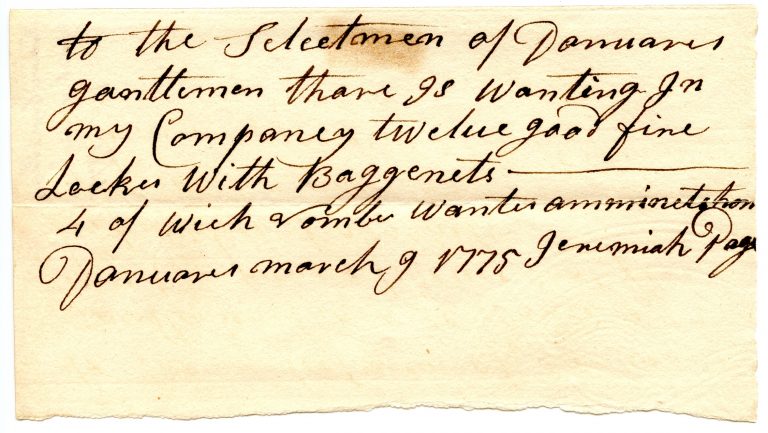 to the Selectmen of Danuars
ganttemen thare Is Wanting In
my Companey twelue good fire
Lockes With Baggenets
4 of Wich nomber Wantes amminetshon
Danuars march 9 1775 Jeremiah Page